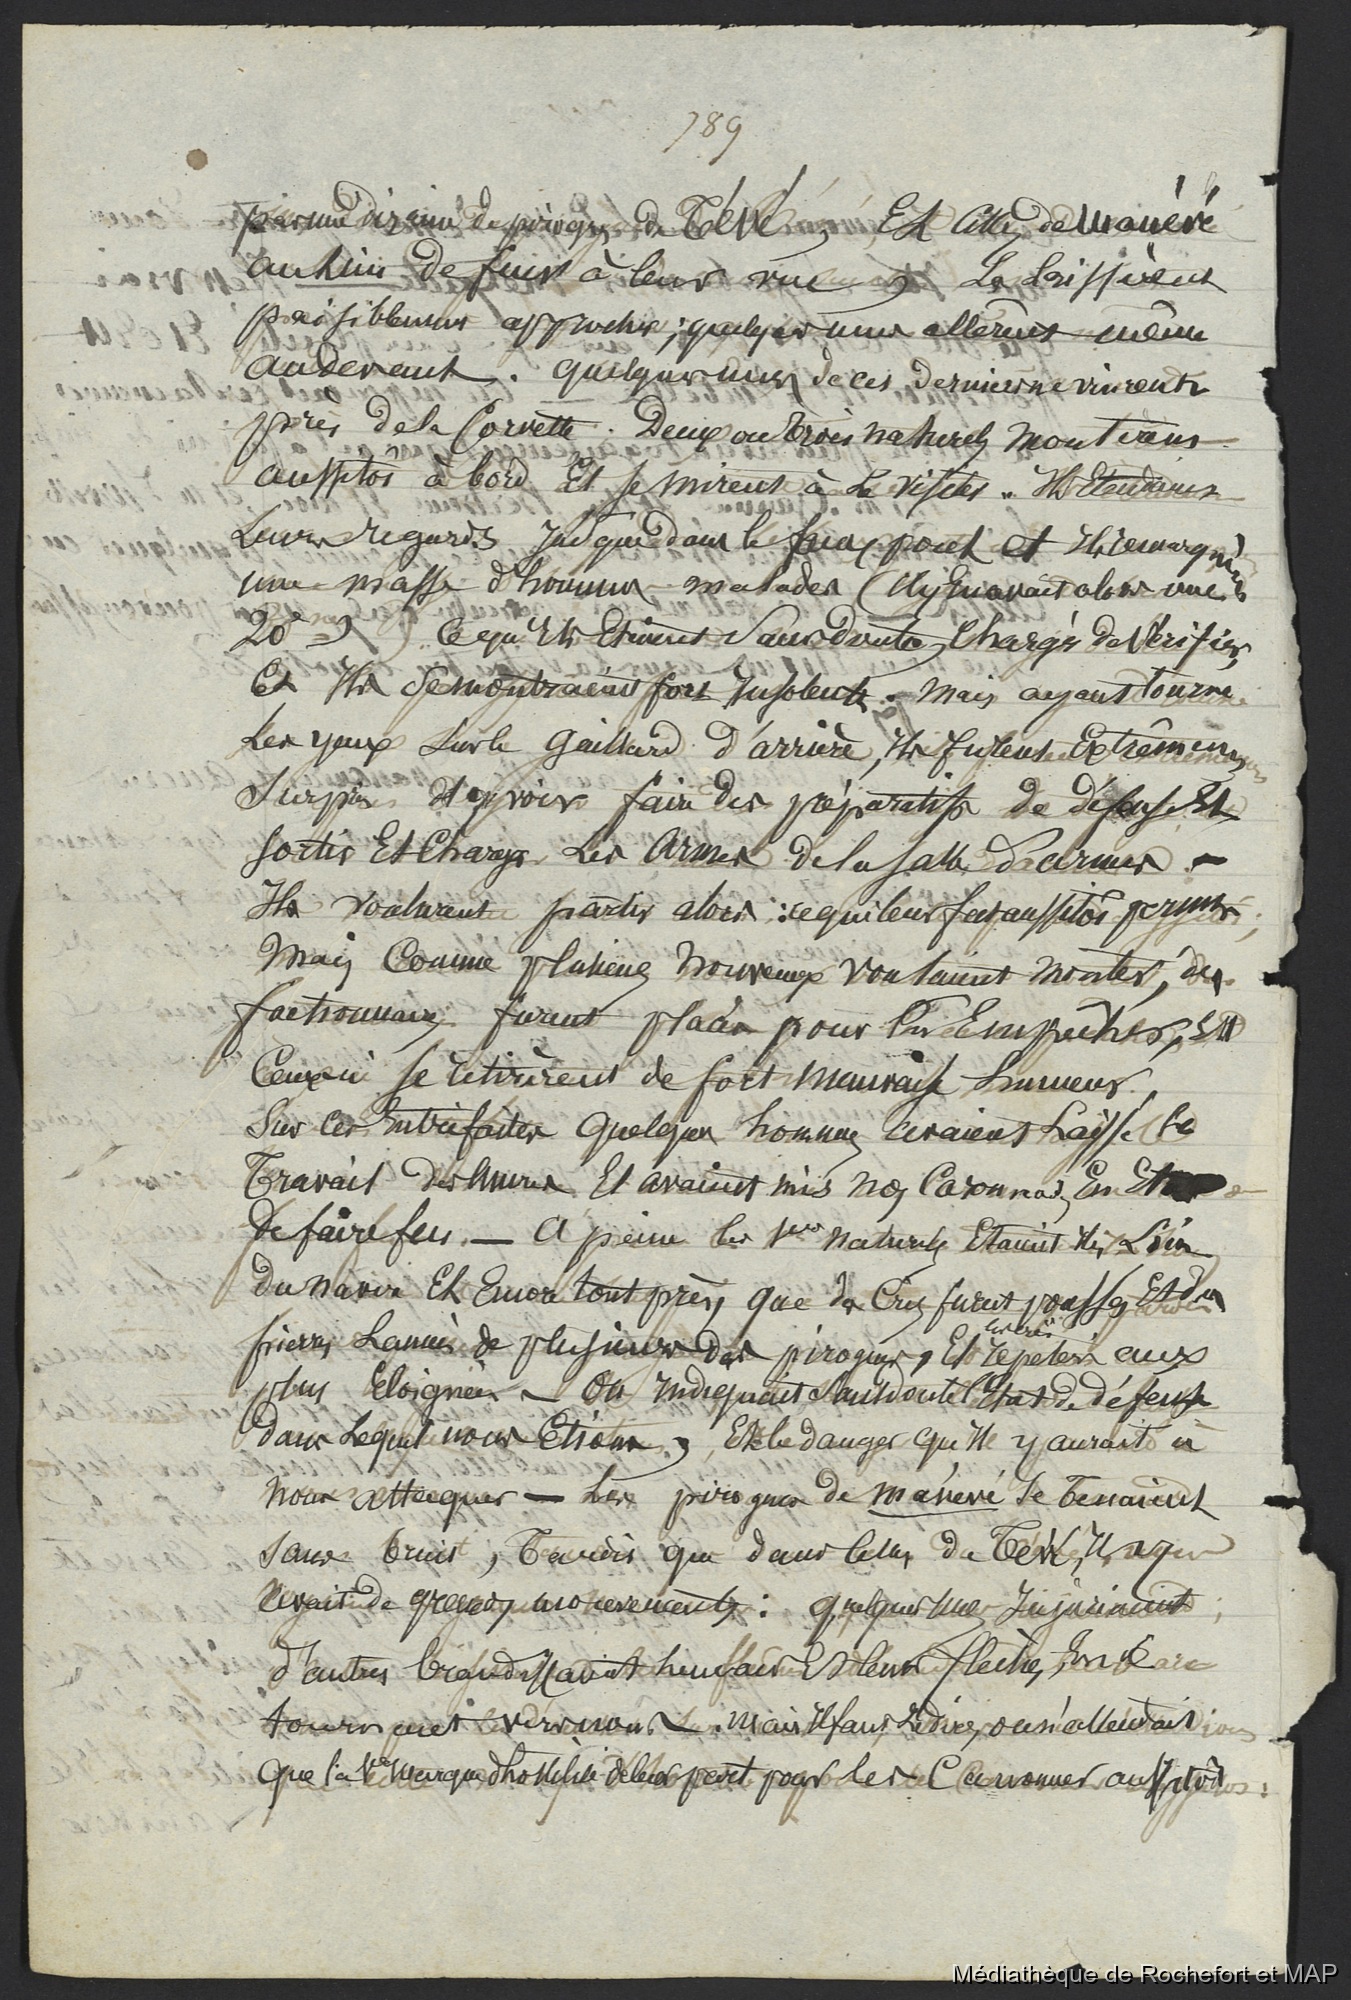 789
par une dizaine de pirogues de Tévé, Et Celles de Manévé
au lieu de fuir à leur vue, Le Laissèrent
paisiblement approcher; quelques unes allèrent même
audevant. quelques unes de ces dernieres vinrent
près de la Corvette. Deux ou trois naturels montèrent
aussitôt à bord Et se mirent à Le visiter. Ils Etendirent
Leurs regards Jusque dans le faux pont et Ils remarquèrent
une masse d'hommes malades (Il y en avait alors une
20ne) Ce qu'Ils Etaient Sans doute Chargés de Vérifier,
Et Ils se montraient fort Insolents. Mais ayant tourné
Les yeux Sur le Gaillard d'arrière, Ils furent Extrêmement
Surpris d'y voir faire des préparatifs de défense Et
Sortir Et Charger Les Armes de la salle d'armes. —
Ils voulurent partir alors: ce qui leur fut aussitôt permis;
Mais Comme plusieurs nouveaux voulaient monter, des
factionnaires furent placés pour les Empêcher, Et
Ceux ci se retirèrent de fort mauvaise humeur.
Sur ces Entrefaites quelques hommes avaient Laissé Le
Travail des Et avaient mis nos Caronades En Etat
De faire feu. — A peine les 1ers naturels Etaient Ils Loin
du navire Et Encore tout près, que des Cris furent poussés Et des
pierres Lancées de plusieurs des pirogues, Et les cris répétés aux
plus Eloignées — On Indiquait Sans doute l'Etat de défense
dans Lequel nous Etions, Et le danger qu'Il y aurait à
nous attaquer — Les pirogues de Manévé se Tenaient
Sans bruit, Tandis que dans celles de Tévé, Il
avait de grands mouvements: quelques unes Injuriaient,
d'autres brandissaient leurs Et leurs flèches,
tournées vers nous. Mais Il faut Le dire, on n'attendait
que la 1ère marque d'hostilité de leur part pour les Canonner aussitôt:
Médiathèque de Rochefort et MAP